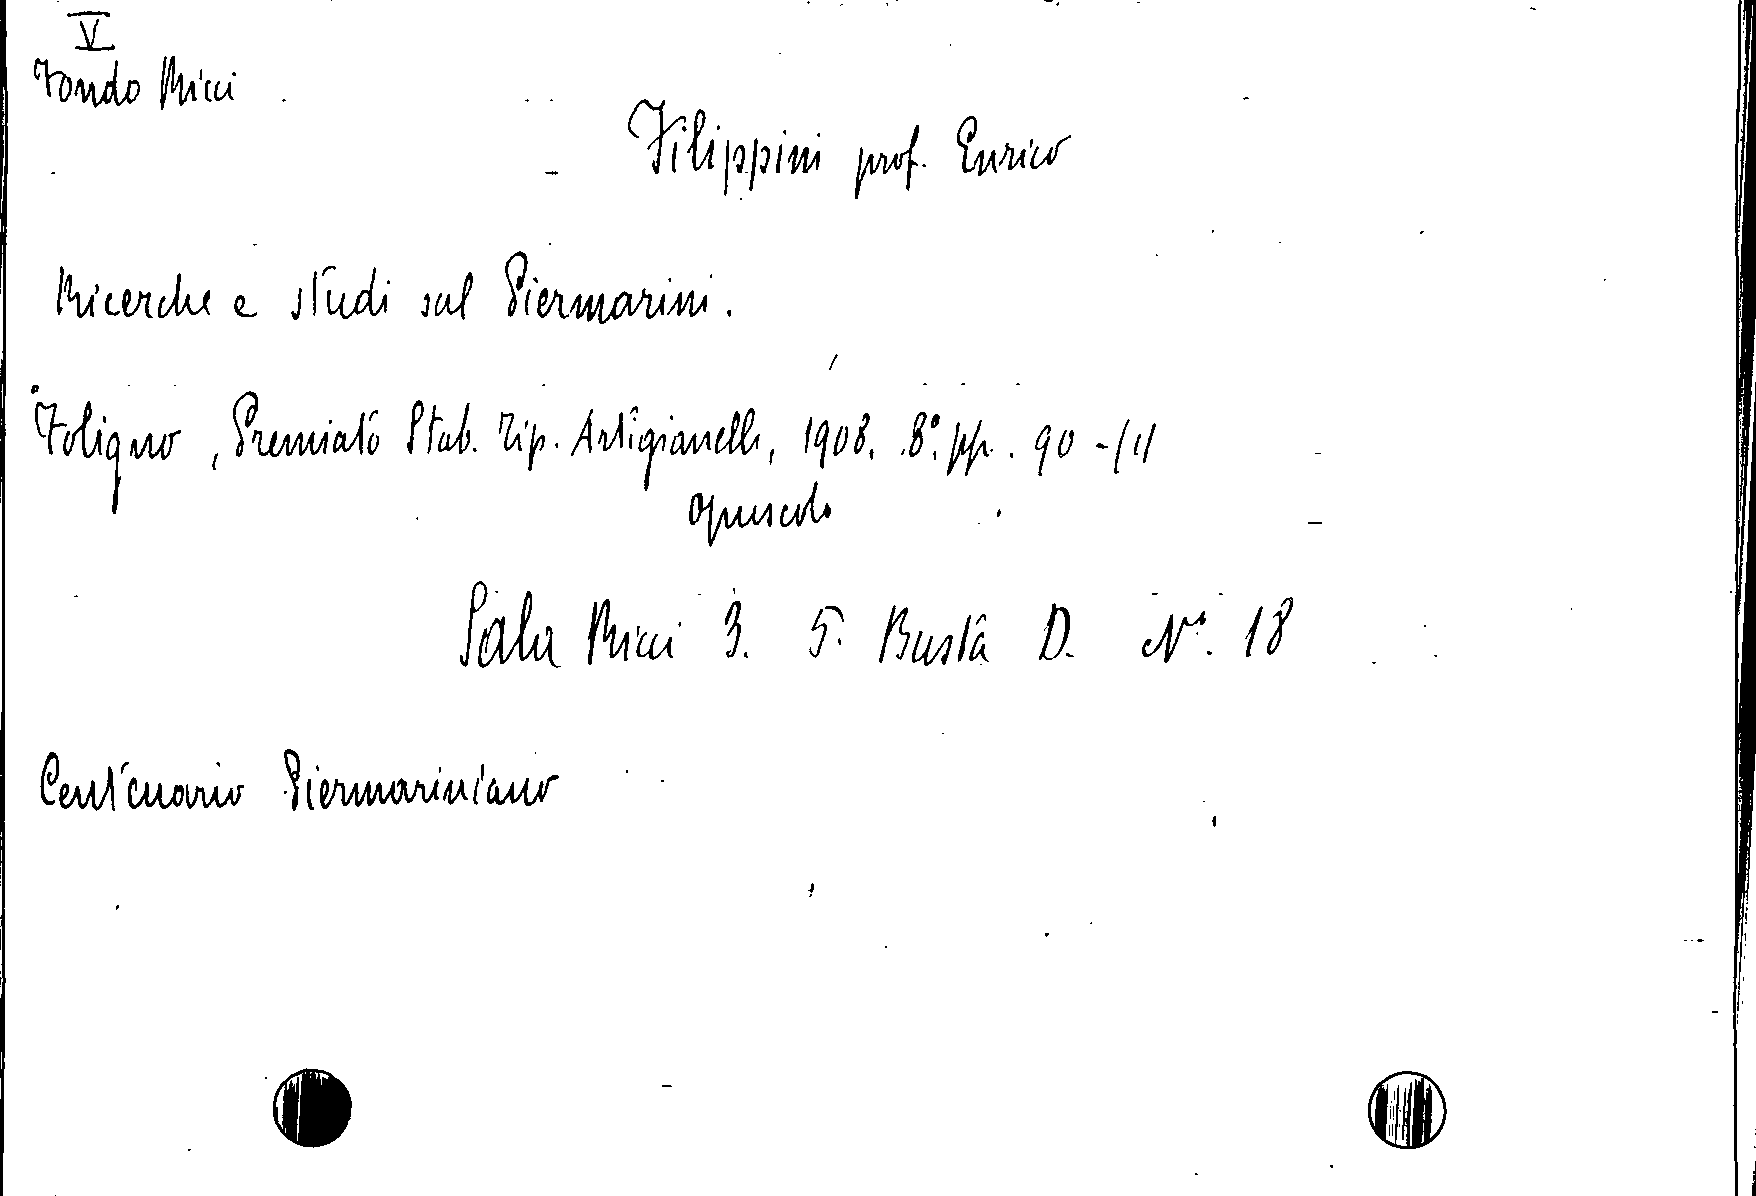 V
Fondo Ricci
Filippini prof. Enrico
Ricerche e studi sul Piermarini.
Foligno, Premiato Stab. Tip. Artigianelli, 1908. 8°. pp. 90 -
opuscolo
Sala Ricci 3. 5. Busta D. N°. 18
Centenario Piermariniano